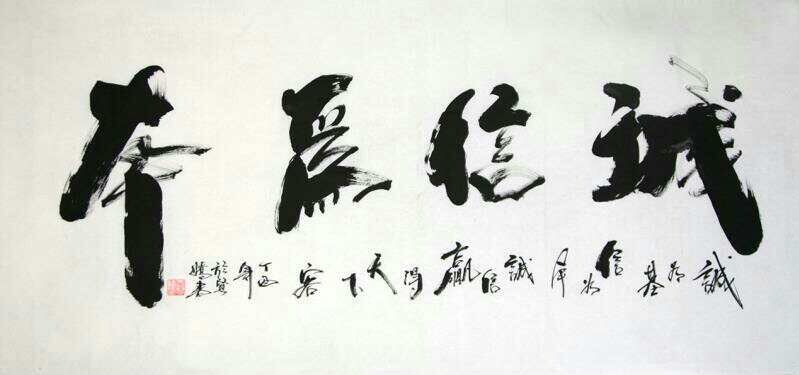 誠信為本
誠為基信為 誠信贏得天下客
丁酉年